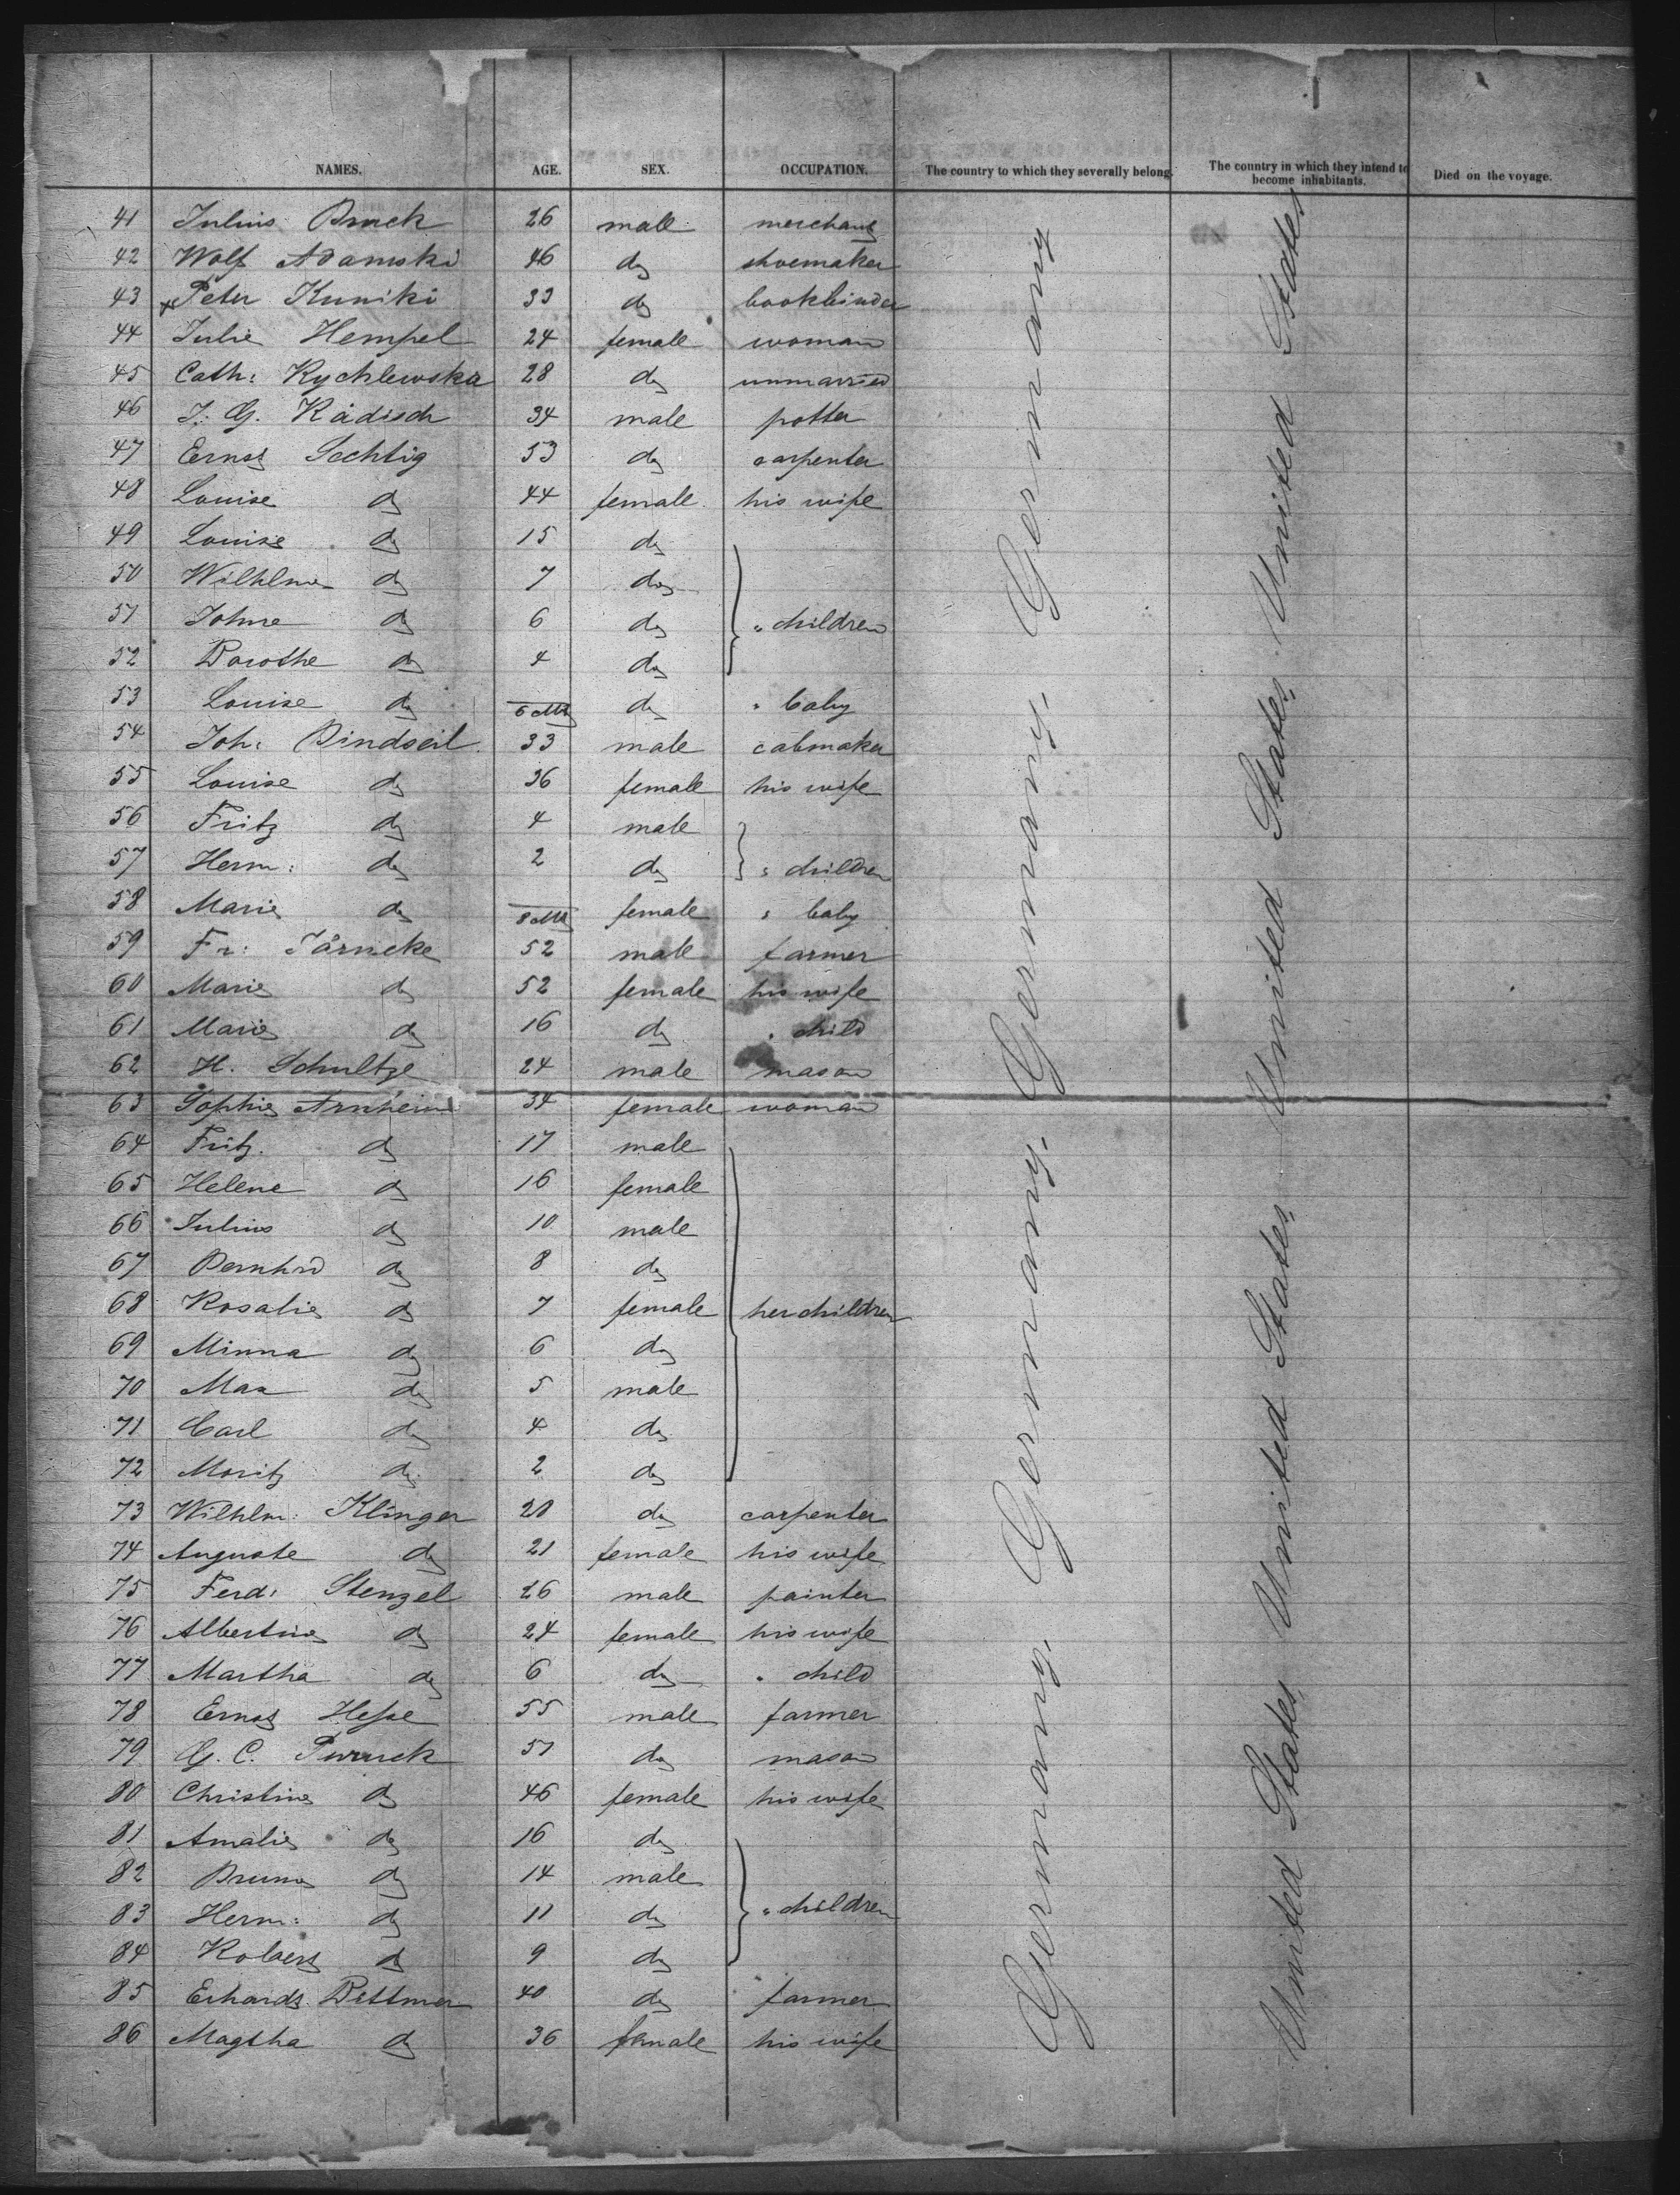 NAMES. AGE. SEX. OCCUPATION. The country to which they severally belong. The country in which they intend to become inhabitants. Died on the voyage.
41 Julius Bruck 26 male merchant
42 Wolf Adamski 46 do shoemaker
43 Peter Kuniki 33 do bookbinder
44 Julie Hempel 24 female woman
45 Cath: Rychlewska 28 do unmarried
46 J. G. Rädisch 34 male potter
47 Ernst Sechtig 53 do carpenter
48 Louise do 44 female his wife
49 Louise do 15 do
50 Wilhlme do 7 do
51 Johne do 6 do " children
52 Dorothe do 4 do
53 Louise do 6 Mt do " baby
54 Joh: Bindseil 33 male cabmaker
55 Louise do 36 female his wife
56 Fritz do 4 male
57 Herm: do 2 do " children
58 Marie do 8 Mt female " baby
59 Fr: Järneke 52 male farmer
60 Marie do 52 female his wife
61 Marie do 16 do " child
62 H. Schultze 24 male mason
63 Sophie Arnheim 34 female woman
64 Fritz do 17 male
65 Helene do 16 female
66 Julius do 10 male
67 Bernhrd do 8 do
68 Rosalie do 7 female her children
69 Minna do 6 do
70 Max do 5 male
71 Carl do 4 do
72 Moritz do 2 do
73 Wilhlm: Klinger 20 do carpenter
74 Auguste do 21 female his wife
75 Ferd: Stenzel 26 male painter
76 Albertine do 24 female his wife
77 Martha do 6 do " child
78 Ernst Hesse 55 male farmer
79 G. C. 51 do mason
80 Christine do 46 female his wife
81 Amalie do 16 do
82 Bruno do 14 male
83 Herm: do 11 do " children
84 Robert do 9 do
85 Erhardt Dettmer 40 do farmer
86 Magtha do 36 female his wife
Germany, Germany, Germany, Germany
United States, United States, United States, United States